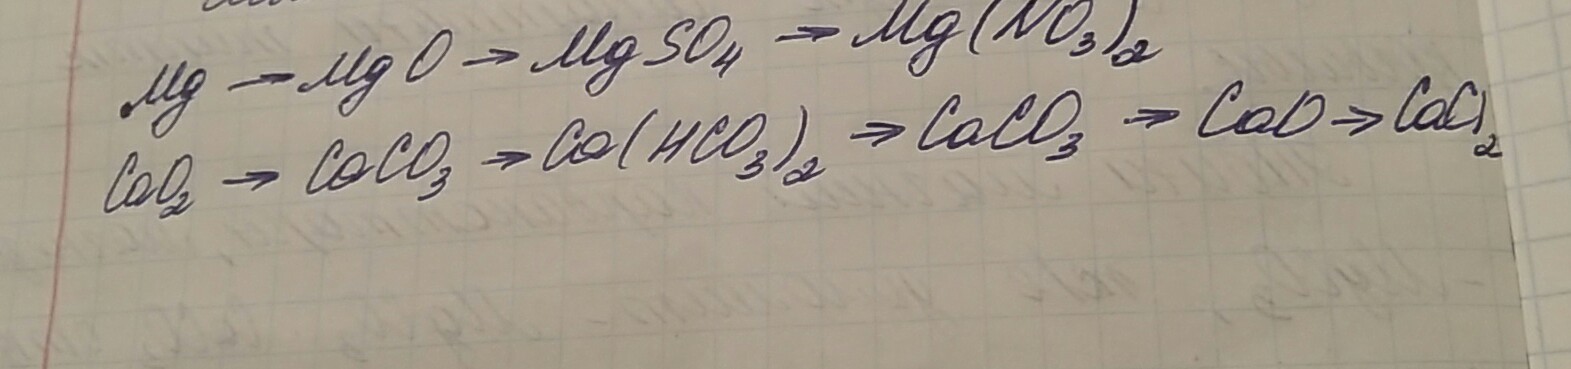 Mg → MgO → MgSO₄ → Mg(NO₃)₂
CaO₂ → CaCO₃ → Ca(HCO₃)₂ → CaCO₃ → CaO → CaCl₂